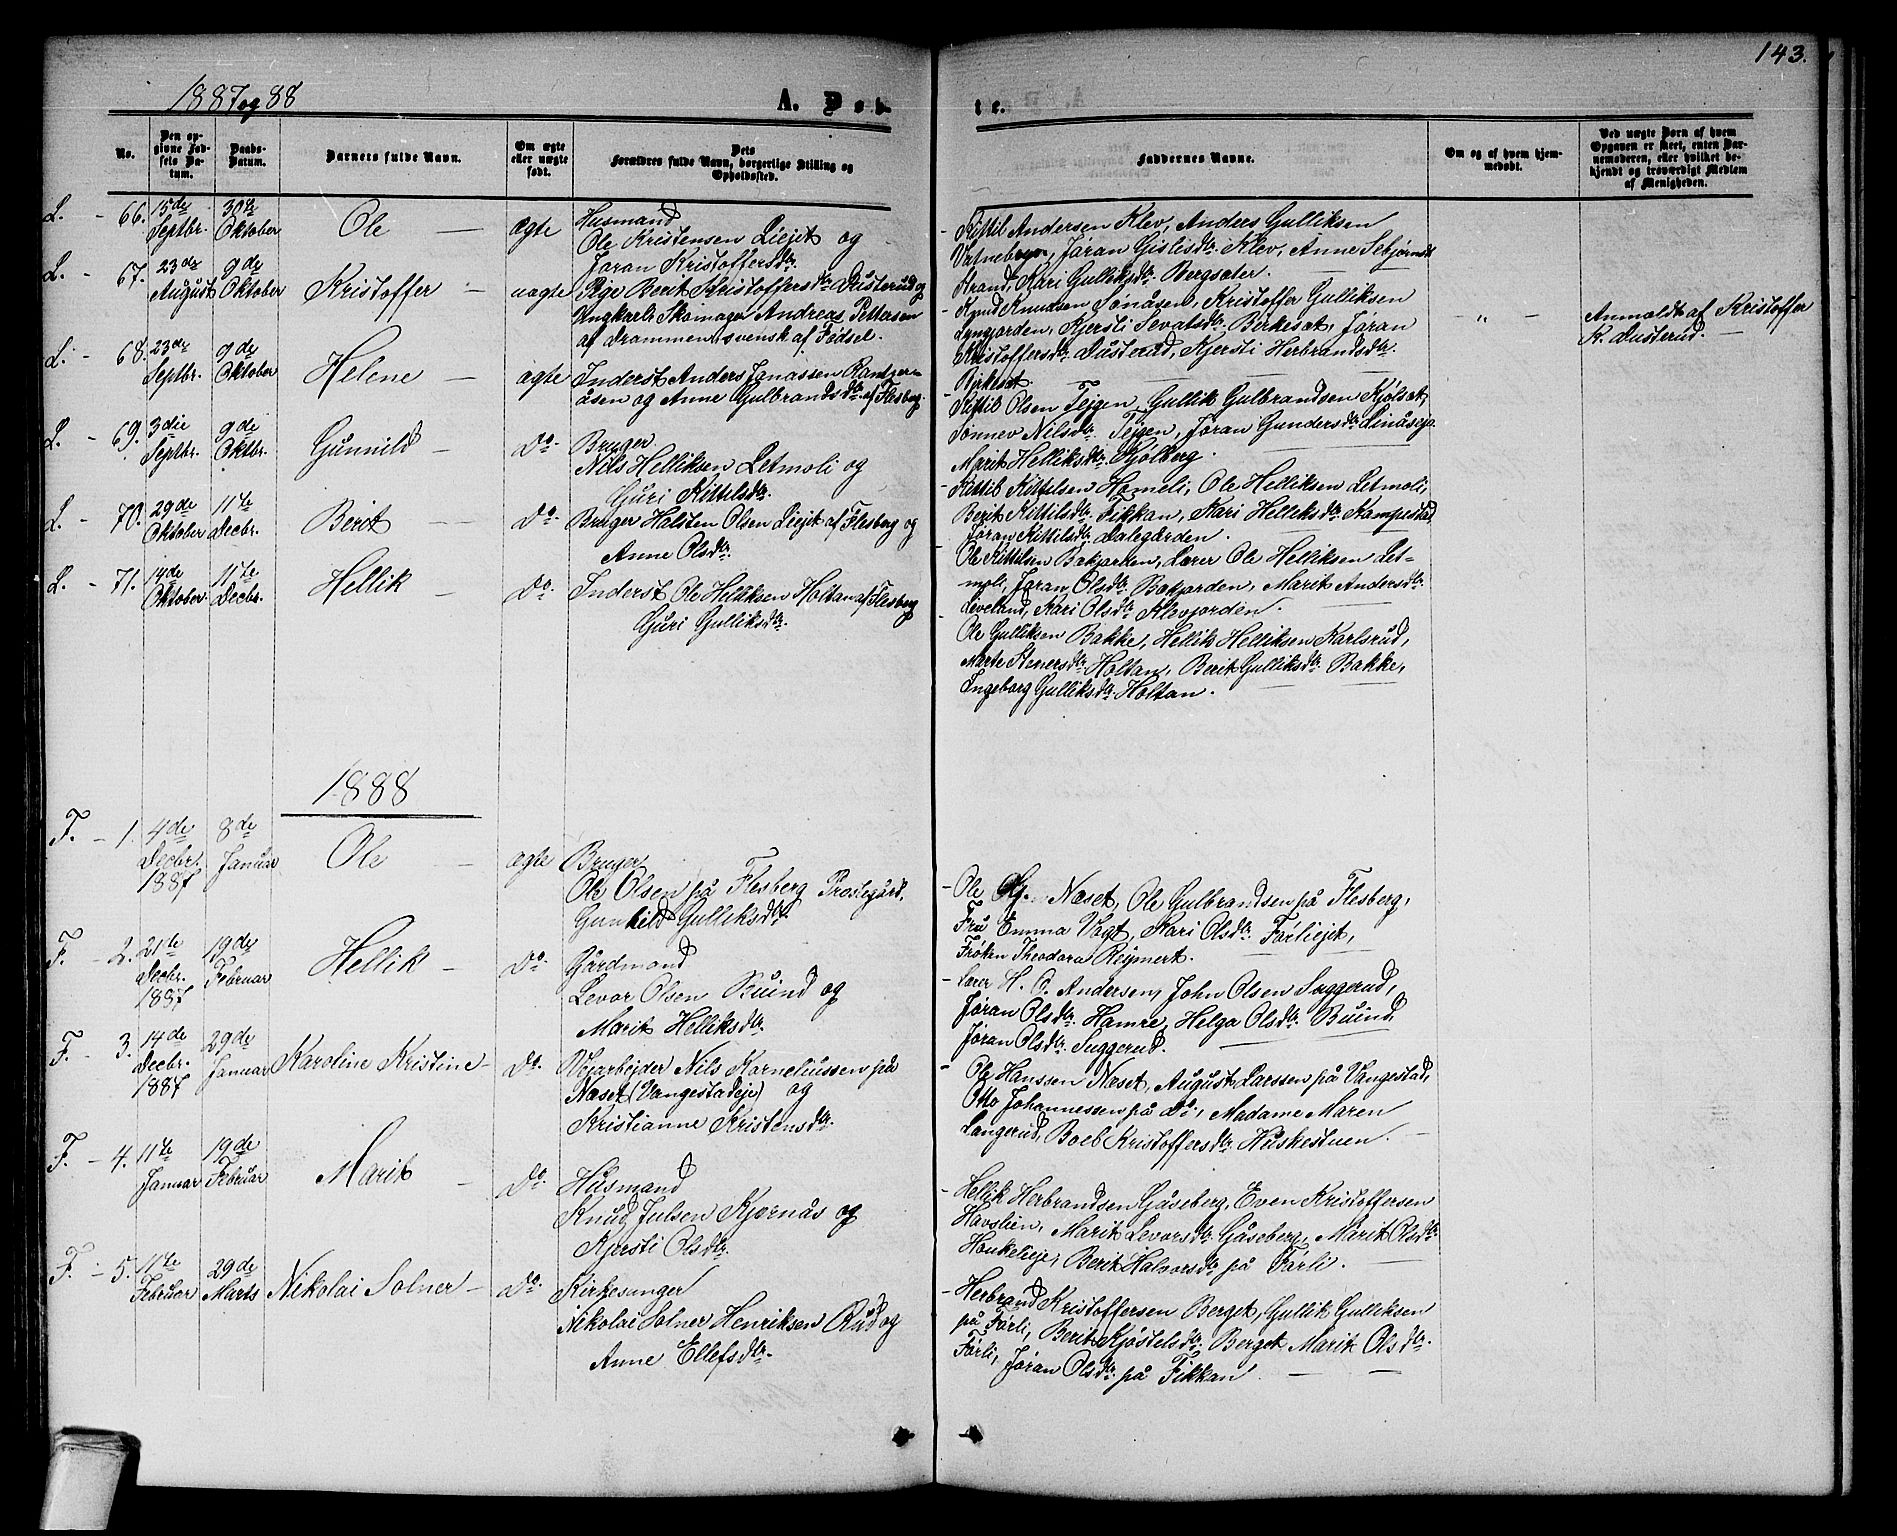 143.
1887 og 88
A. Døb
te.
No.
Den opgivne Fødsels Datum.
Daabs-Datum.
Barnets fulde Navn.
Om ægte eller uægte født.
Dets Forældres fulde Navn, borgerlige Stilling og Opholdssted.
Faddernes Navne.
Om og af hvem hjemmedøbt.
Ved uægte Børn af hvem Opgaven er skeet, enten Barnemoderen, eller hvilket bekjendt og troværdigt Medlem af Menigheden.
L. - 66. 15de Septbr. 30te Oktober Ole - ægte Husmand
Ole Kristensen Liejet og
Jøran Kristoffersdtr.
- Kittil Andersen Klev, Anders Gulliksen
Vatnebryn, Jøran Gislesdtr. Klev, Anne Sebjørnsdtr
Strand, Kari Gulliksdtr. Bergsæter.
L. - 67. 23de August 9de Oktober Kristoffer - uægte Pige Berit Kristoffersdtr Dusterud og
Ungkarl Skomager Andreas Pettersen
af Drammen, svensk af Fødsel.
- Knud Knudsen Sønåsen, Kristoffer Gulliksen
Lyngjorden, Kjersti Sevatsdtr. Birkesæt, Jøran
Kristoffersdtr. Dusterud, Kjersti Herbrandsdtr.
Birkesæt.
- " -
Anmeldt af Kristoffer
K. Dusterud.
L. - 68. 23de Septbr. 9de Oktober Helene - ægte Inderst Anders Janassen
åsen og Anne Gulbrandsdtr. af Flesberg.
- Kittil Olsen Tejgen, Gullik Gulbrandsen Kjølsæt,
Sønnev Nilsdtr. Tejgen, Jøran Gundersdtr.
Marit Helliksdtr. Kjølberg.
L. - 69. 3die Septbr. 9de Oktbr. Gunnild - Do. Bruger
Nils Helliksen Letmoli og
Guri Kittilsdtr.
- Kittil Kittilsen Homeli, Ole Helliksen Letmoli,
Berit Kittilsdtr. Fikkan, Kari Helliksdtr Kampestad
Jøran Kittilsdtr. Dalegården.
L. - 70. 29de Oktober 11te Decbr. Berit - Do. Bruger Halsten Olsen Liejet af Flesberg og
Anne Olsdtr.
- Ole Kittilsen Bakjorden, Lærer Ole Helliksen Let-
moli, Jøran Olsdtr Bakjorden, Marit Andersdtr.
Leveland, Kari Olsdtr. Klevjorden.
L. - 71. 14de Oktober 11te Decbr. Hellik - Do. Inderst Ole Helliksen Holtan af Flesberg
Guri Gulliksdtr.
- Ole Gulliksen Bakke, Hellik Helliksen Karlsrud,
Marte Stenersdtr Holtan, Berit Gulliksdtr. Bakke,
Ingeborg Gulliksdtr Holtan.
1888
F. - 1. 4de Decbr. 1887 8de Januar Ole - ægte Bruger
Ole Olsen på Flesberg Prestegård,
Gunhild Gulliksdtr.
- Ole Næset, Ole Gulbrandsen på Flesberg,
Fru Emma Vogt, Kari Olsdtr. Førliejet,
Frøken Theodora Reymert.
F. - 2. 21te Decbr. 1887 19de Februar Hellik - Do. Gårdmand
Levor Olsen Buind og
Marit Helliksdtr.
- Lærer H. O. Andersen, John Olsen Suggerud,
Jøran Olsdtr. Hamre, Helga Olsdtr. Buind
Jøran Olsdtr. Suggerud.
F. - 3. 14de Decbr. 1887 29de Januar Karoline Kristine - Do. Vejarbejder Nils Korneliussen på
Næset (Vangestadeje) og
Kristianne Kristensdtr.
- Ole Hanssen Næset, August Larssen på Vangestad,
Otto Johannessen på do., Madame Maren
Langerud, Boel Kristoffersdtr. Huskestuen.
F. - 4. 11te Januar 19de Februar Marit - Do. Husmand
Knud Julsen Kjørnås og
Kjersti Olsdtr.
- Hellik Herbrandsen Gåseberg, Even Kristoffersen
Havslien, Marit Levorsdtr. Gåseberg, Marit Olsdtr
Haukelieje, Berit Halvorsdtr. på Førli.
F. - 5. 11te Februar 29de Marts Nikolai Solner - Do. Kirkesanger
Nikolai Solner Henriksen Rud og
Anne Ellefsdtr.
- Herbrand Kristoffersen Berget, Gullik Gulliksen
på Førli, Berit Kjøstelsdtr. Berget Marit Olsdtr.
Førli, Jøran Olsdtr. på Fikkan.